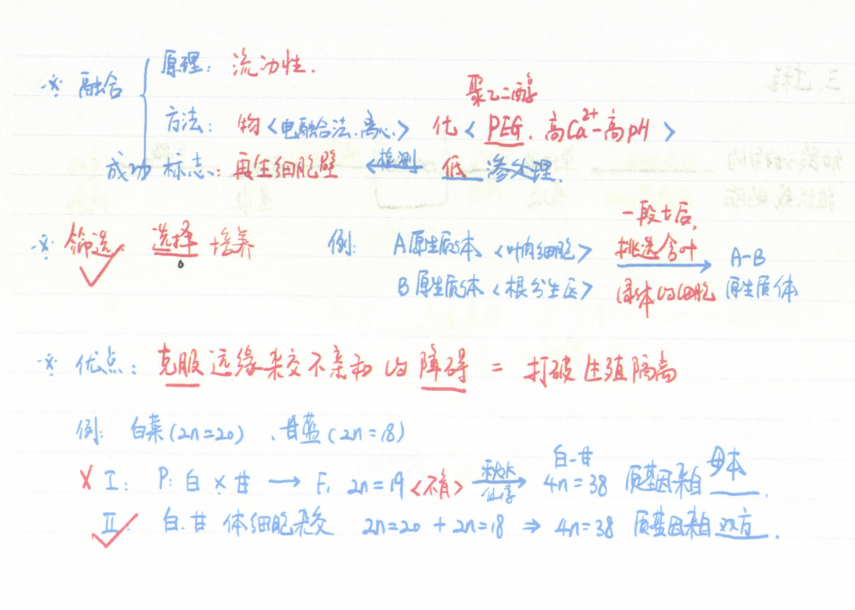 ※ 融合 { 原理: 流动性.
聚乙二醇
方法: 物<电融合法、离心> 化<PEG、高Ca²⁺-高pH>
成功 标志: 再生细胞壁 ← 检测 低渗处理.
※ 筛选 选择 培养 例: A原生质体 <叶肉细胞> 一段t后, 挑选含叶 → A-B
B原生质体 <根分生区> 绿体的细胞 原生质体
※ 优点: 克服远缘杂交不亲和的障碍 = 打破生殖隔离
例: 白菜(2n=20)、甘蓝(2n=18)
X I: P: 白×甘 → F₁ 2n=19<不育> 秋水仙素 → 白-甘 4n=38 质基因来自母本.
II: 白.甘 体细胞杂交 2n=20 + 2n=18 ⇒ 4n=38 质基因来自双方.